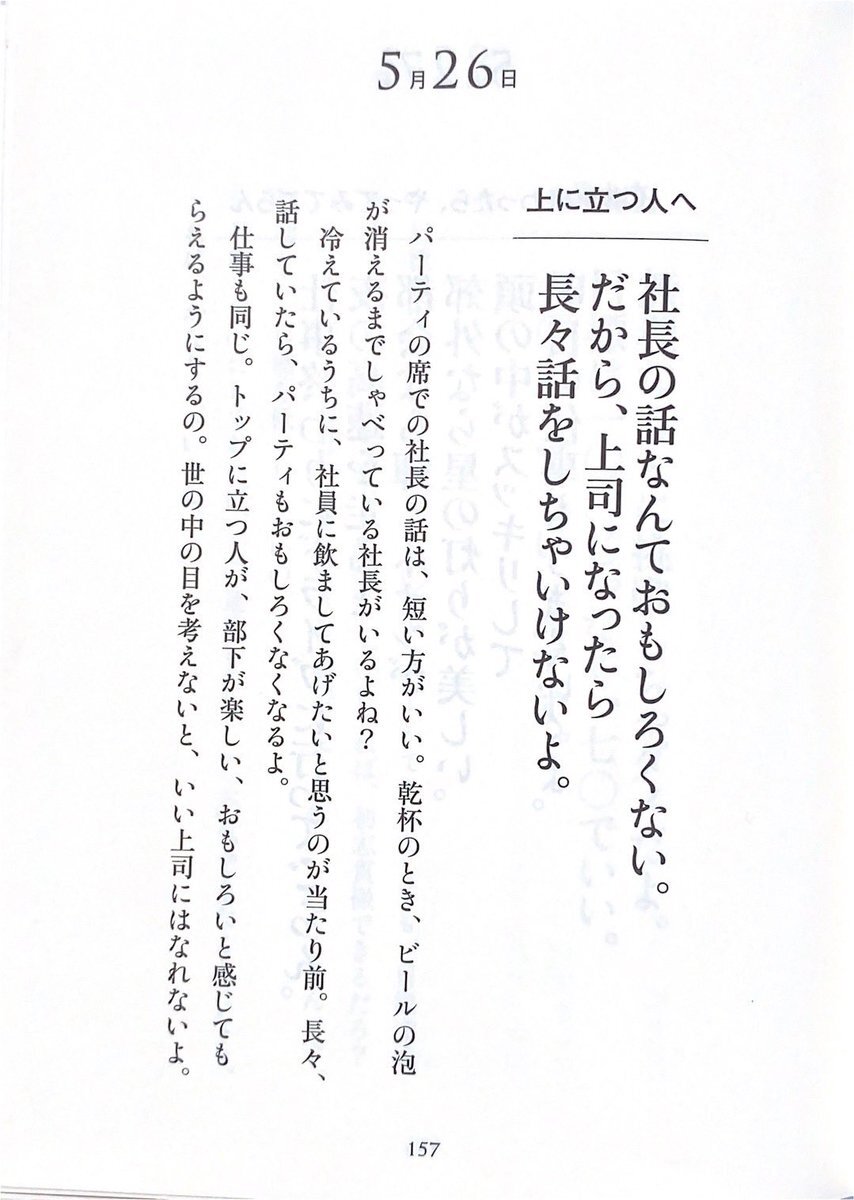 5月26日
上に立つ人へ
社長の話なんておもしろくない。
だから、上司になったら
長々話をしちゃいけないよ。
パーティの席での社長の話は、短い方がいい。乾杯のとき、ビールの泡
が消えるまでしゃべっている社長がいるよね？
冷えているうちに、社員に飲ましてあげたいと思うのが当たり前。長々、
話していたら、パーティもおもしろくなくなるよ。
仕事も同じ。トップに立つ人が、部下が楽しい、おもしろいと感じても
らえるようにするの。世の中の目を考えないと、いい上司にはなれないよ。
157